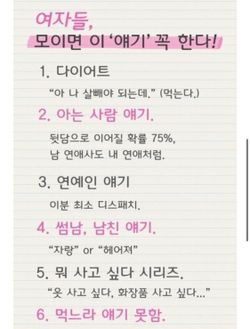 여자들,
모이면 이 '얘기' 꼭 한다!
1. 다이어트
"아 나 살빼야 되는데." (먹는다.)
2. 아는 사람 얘기.
뒷담으로 이어질 확률 75%,
남 연애사도 내 연애처럼.
3. 연예인 얘기
이분 최소 디스패치.
4. 썸남, 남친 얘기.
"자랑" or "헤어져"
5. 뭐 사고 싶다 시리즈.
"옷 사고 싶다, 화장품 사고 싶다..."
6. 먹느라 얘기 못함.